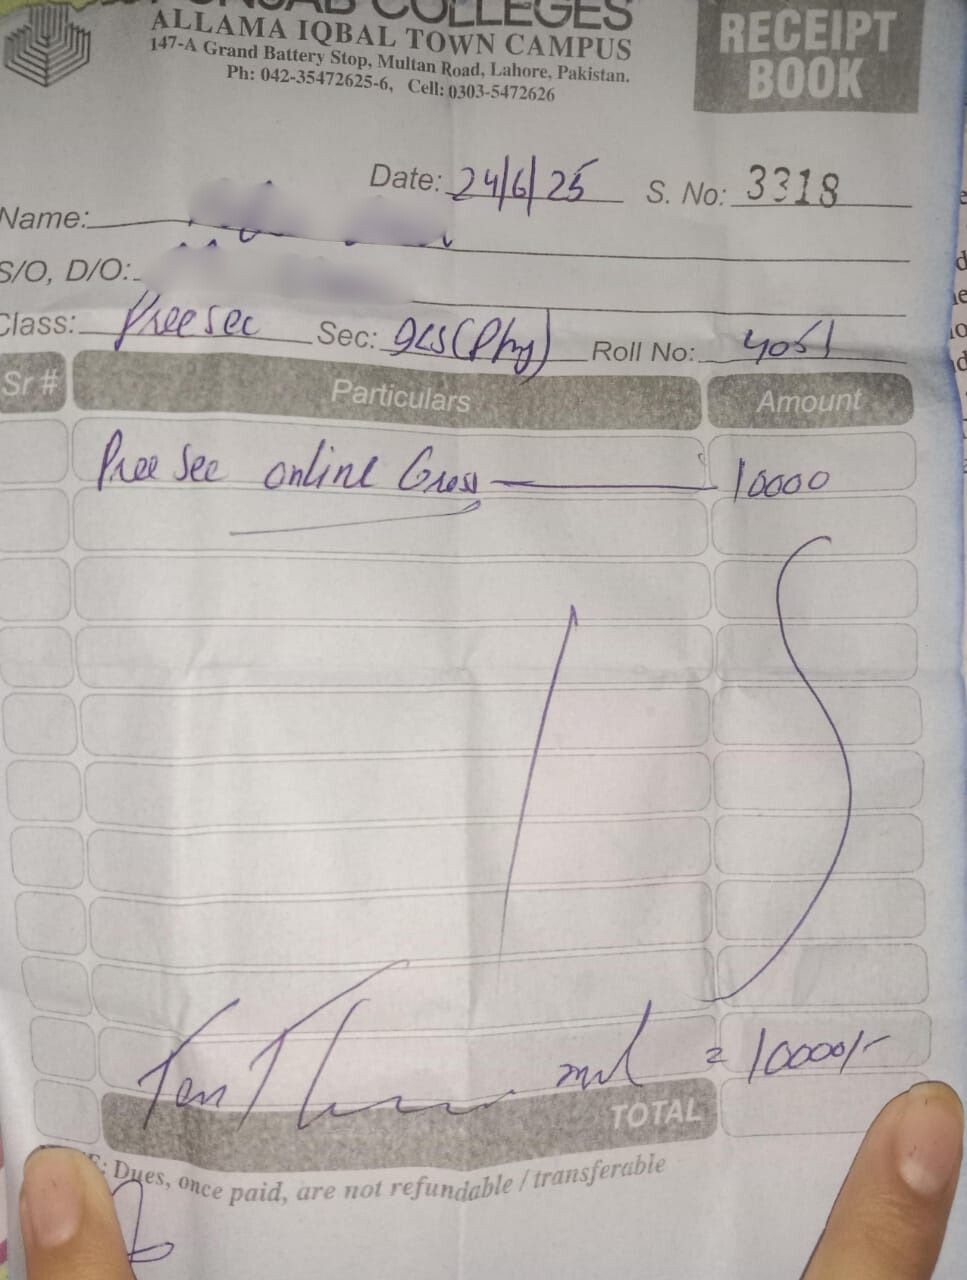 PUNJAB COLLEGES
ALLAMA IQBAL TOWN CAMPUS
147-A Grand Battery Stop, Multan Road, Lahore, Pakistan.
Ph: 042-35472625-6, Cell: 0303-5472626
RECEIPT
BOOK
Date: 24/6/25 S. No: 3318
Name:
S/O, D/O:
Class: Pree sec Sec: gcs (Phy) Roll No: 4051
Sr # Particulars Amount
Pree sec online 10000
Ten Thousand = 10000/-
TOTAL
Dues, once paid, are not refundable / transferable